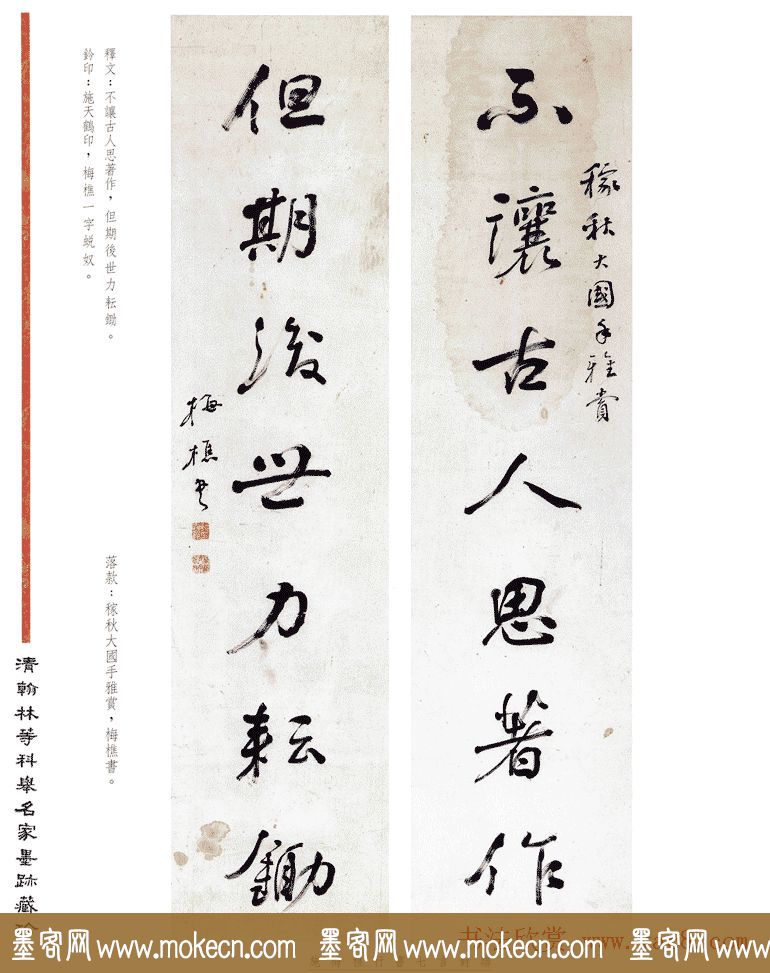 不讓古人思著作
稼秋大國手雅賞
但期後世力耘鋤
梅樵書
釋文：不讓古人思著作，但期後世力耘鋤。
鈐印：施天鶴印，梅樵一字蛻奴。
落款：稼秋大國手雅賞，梅樵書。
清翰林等科舉名家墨跡藏
书法欣赏
墨客网 www.mokecn.com 墨客网 www.mokecn.com 墨客网